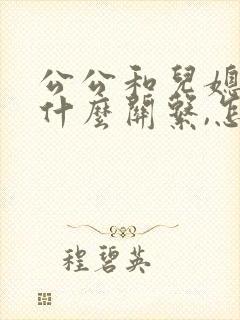 公公和兒媳
什麼關繫,怎
程碧英